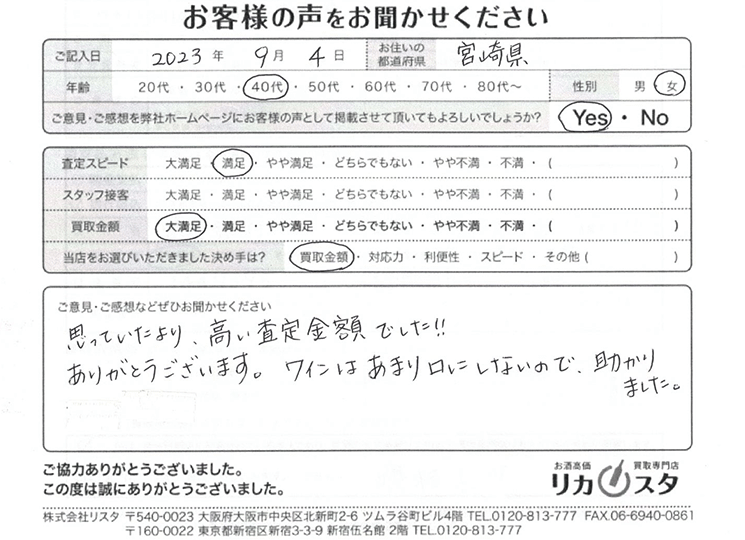 お客様の声をお聞かせください
ご記入日 2023 年 9 月 4 日 お住いの都道府県 宮崎県
年齢 20代 ・ 30代 ・ 40代 ・ 50代 ・ 60代 ・ 70代 ・ 80代〜 性別 男 女
ご意見・ご感想を弊社ホームページにお客様の声として掲載させて頂いてもよろしいでしょうか? Yes ・ No
査定スピード 大満足 ・ 満足 ・ やや満足 ・ どちらでもない ・ やや不満 ・ 不満 ・ ( )
スタッフ接客 大満足 ・ 満足 ・ やや満足 ・ どちらでもない ・ やや不満 ・ 不満 ・ ( )
買取金額 大満足 ・ 満足 ・ やや満足 ・ どちらでもない ・ やや不満 ・ 不満 ・ ( )
当店をお選びいただきました決め手は? 買取金額 ・ 対応力 ・ 利便性 ・ スピード ・ その他 ( )
ご意見・ご感想などぜひお聞かせください
思っていたより、高い査定金額でした!!
ありがとうございます。ワインはあまり口にしないので、助かり
ました。
ご協力ありがとうございました。
この度は誠にありがとうございました。
お酒高価 買取専門店
リカスタ
株式会社リスタ 〒540-0023 大阪府大阪市中央区北新町2-6 ツムラ谷町ビル4階 TEL.0120-813-777 FAX.06-6940-0861
〒160-0022 東京都新宿区新宿3-3-9 新宿伍名館 2階 TEL.0120-813-777